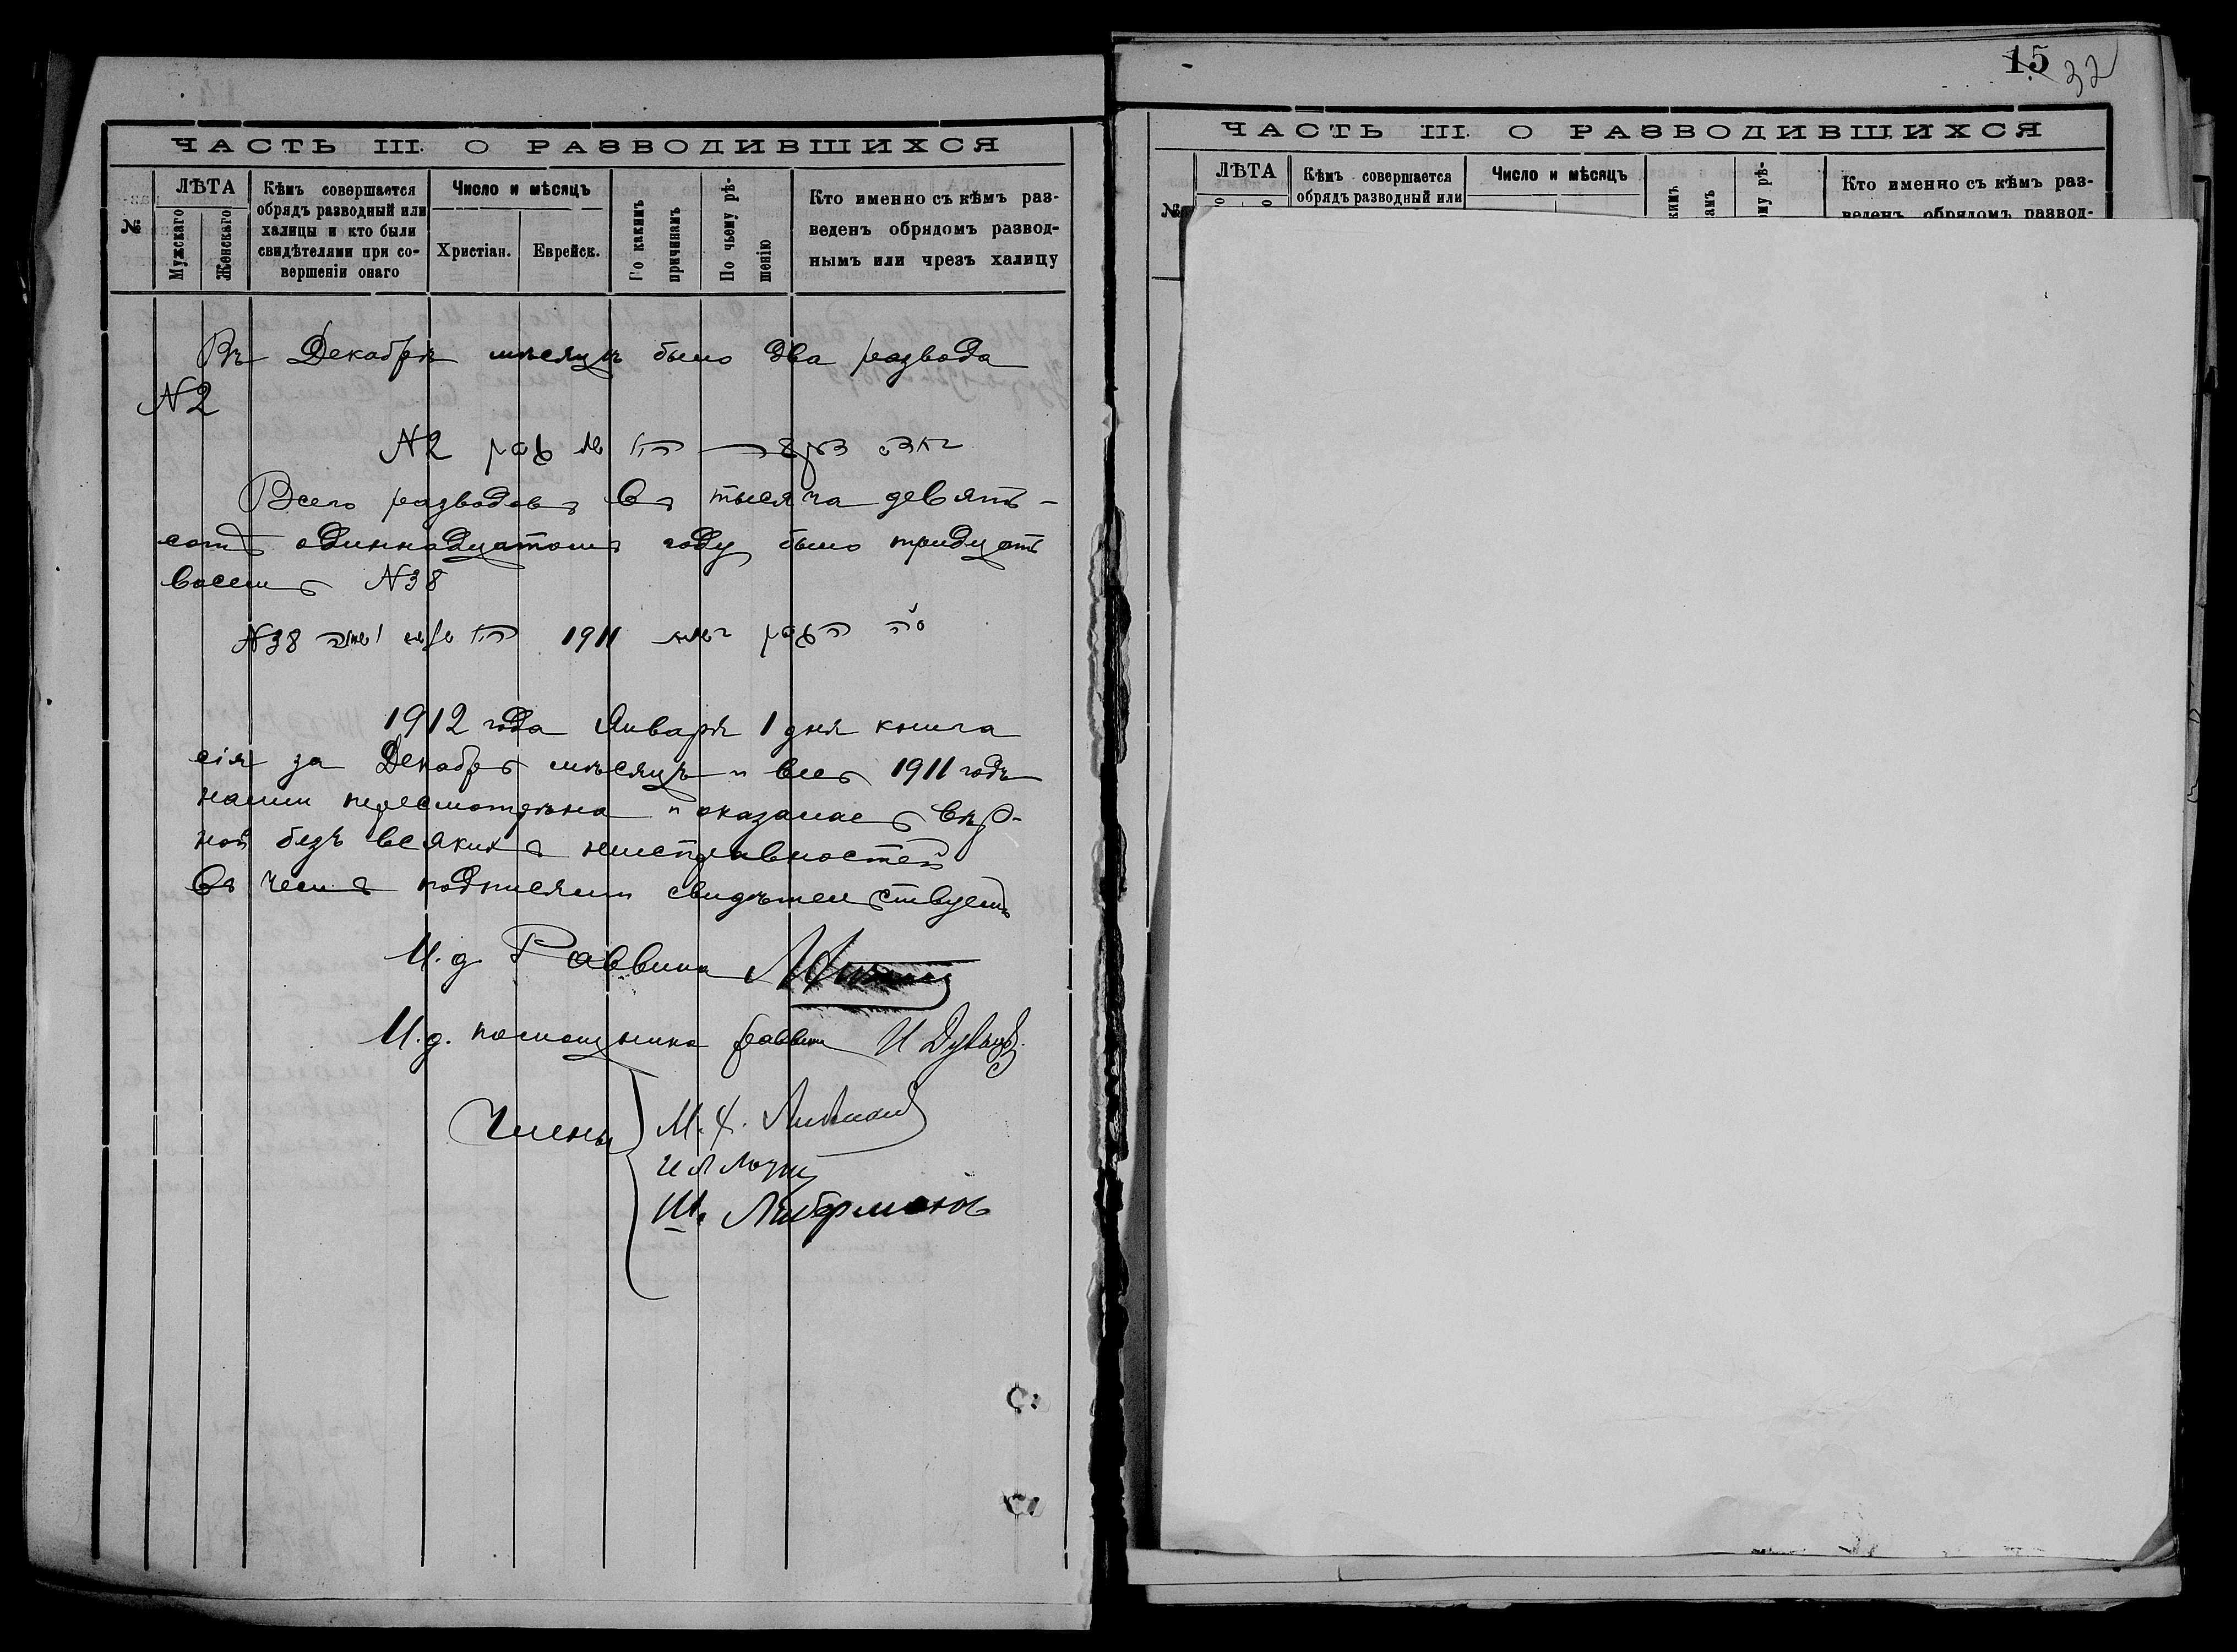 ЧАСТЬ III. О РАЗВОДИВШИХСЯ
№
ЛѢТА
Мужскаго
Женскаго
Кѣмъ совершается
обрядъ разводный или
халицы и кто были
свидѣтелями при со-
вершеніи онаго
Число и мѣсяцъ
Христіан.
Еврейск.
По какимъ
причинамъ
По чьему рѣ-
шенію
Кто именно съ кѣмъ раз-
веденъ обрядомъ развод-
нымъ или чрезъ халицу
Въ Декабрѣ мѣсяцѣ было два развода
№2
№2
Всего разводовъ въ тысяча девять-
сотъ одиннадцатомъ году было тридцать
восемь №38
№38 1911
1912 года Января 1 дня книга
сія за Декабрь мѣсяцъ и весь 1911 годъ
нами пересмотрѣна и оказалась вѣр-
ной безъ всякихъ неисправностей
въ чемъ подписями свидѣтельствуемъ
И. д. Раввина
И. д. помощника раввина И
Члены
М.
Ш. Либерманъ
15 32
ЧАСТЬ III. О РАЗВОДИВШИХСЯ
№
ЛѢТА
Кѣмъ совершается
обрядъ разводный или
Число и мѣсяцъ
кимъ
амъ
му рѣ-
Кто именно съ кѣмъ раз-
веденъ обрядомъ развод-